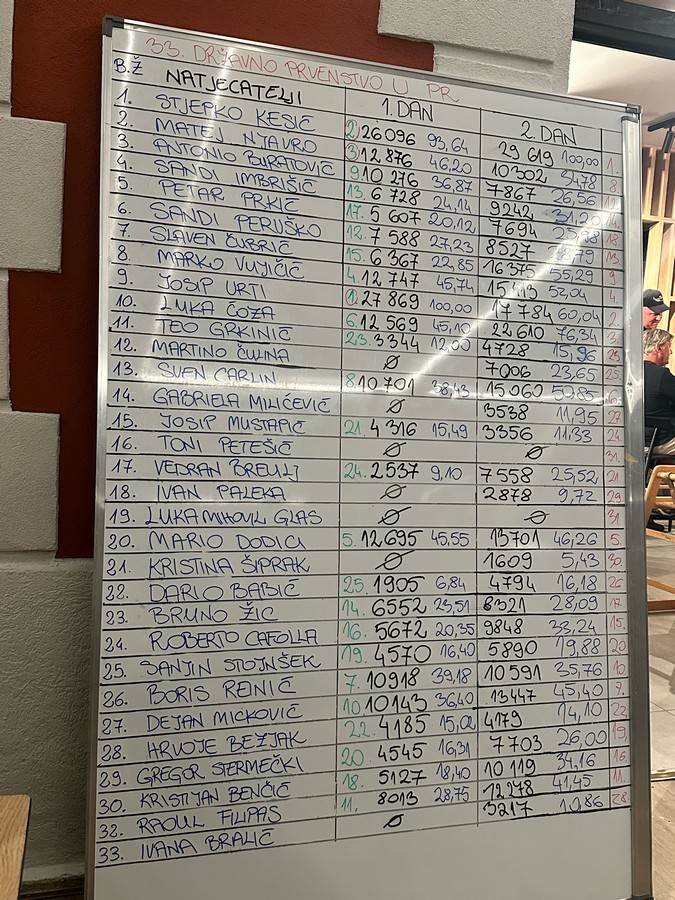 33. DRŽAVNO PRVENSTVO U PR
B.Ž NATJECATELJI 1. DAN 2. DAN
1. STJEPKO KESIĆ 2. 26096 93,64 29619 100,00 1.
2. MATEJ NJAVRO 3. 12876 46,20 10302 34,78 8
3. ANTONIO BURATOVIĆ 9. 10276 36,87 7867 26,56
4. SANDI IMBRIŠIĆ 13. 6728 24,14 9242 31,20
5. PETAR PRKIĆ 17. 5607 20,12 7694 18
6. SANDI PERUŠKO 12. 7588 27,23 8527 13
7. SLAVEN ČUBRIĆ 15. 6367 22,85 16375 55,29
8. MARKO VUJIČIĆ 4. 12747 45,74 15413 52,04 4.
9. JOSIP URTI 1. 27869 100,00 17784 60,04 2.
10. LUKA ČOZA 6. 12569 45,10 22610 76,34 3
11. TEO GRKINIĆ 23. 3344 12,00 4728 15,96 23
12. MARTINO ČULINA Ø 7006 23,65 25
13. SVEN CARLIN 8 10701 38,43 15060 50,85
14. GABRIELA MILIĆEVIĆ Ø 3538 11,95 27
15. JOSIP MUSTAPIĆ 21. 4316 15,49 3356 11,33 24
16. TONI PETEŠIĆ Ø Ø 31.
17. VEDRAN BREULJ 24. 2537 9,10 7558 25,52 21
18. IVAN PALEKA Ø 2878 9,72 29
19. LUKA MIHOVIL GLAS Ø Ø 31
20. MARIO DODIG 5. 12695 45,55 13701 46,26 5.
21. KRISTINA ŠIPRAK Ø 1609 5,43 30.
22. DARIO BABIĆ 25. 1905 6,84 4794 16,18 26
23. BRUNO ŽIC 14. 6552 23,51 8321 28,09 17
24. ROBERTO CAFOLLA 16. 5672 20,35 9848 33,24 15.
25. SANJIN STOJNŠEK 19. 4570 16,40 5890 19,88 20
26. BORIS REINIĆ 7. 10918 39,18 10591 35,76 10.
27. DEJAN MICKOVIĆ 10. 10143 36,40 13447 45,40 9.
28. HRVOJE BEZJAK 22. 4185 15,02 4179 14,10 22
29. GREGOR STERMEČKI 20. 4545 16,31 7703 26,00 19,
30. KRISTIJAN BENČIĆ 18. 5127 18,40 10119 34,16 16.
32. RAOUL FILIPAS 11. 8013 28,75 12278 41,45 11.
33. IVANA BRALIĆ Ø 3217 10,86 28.